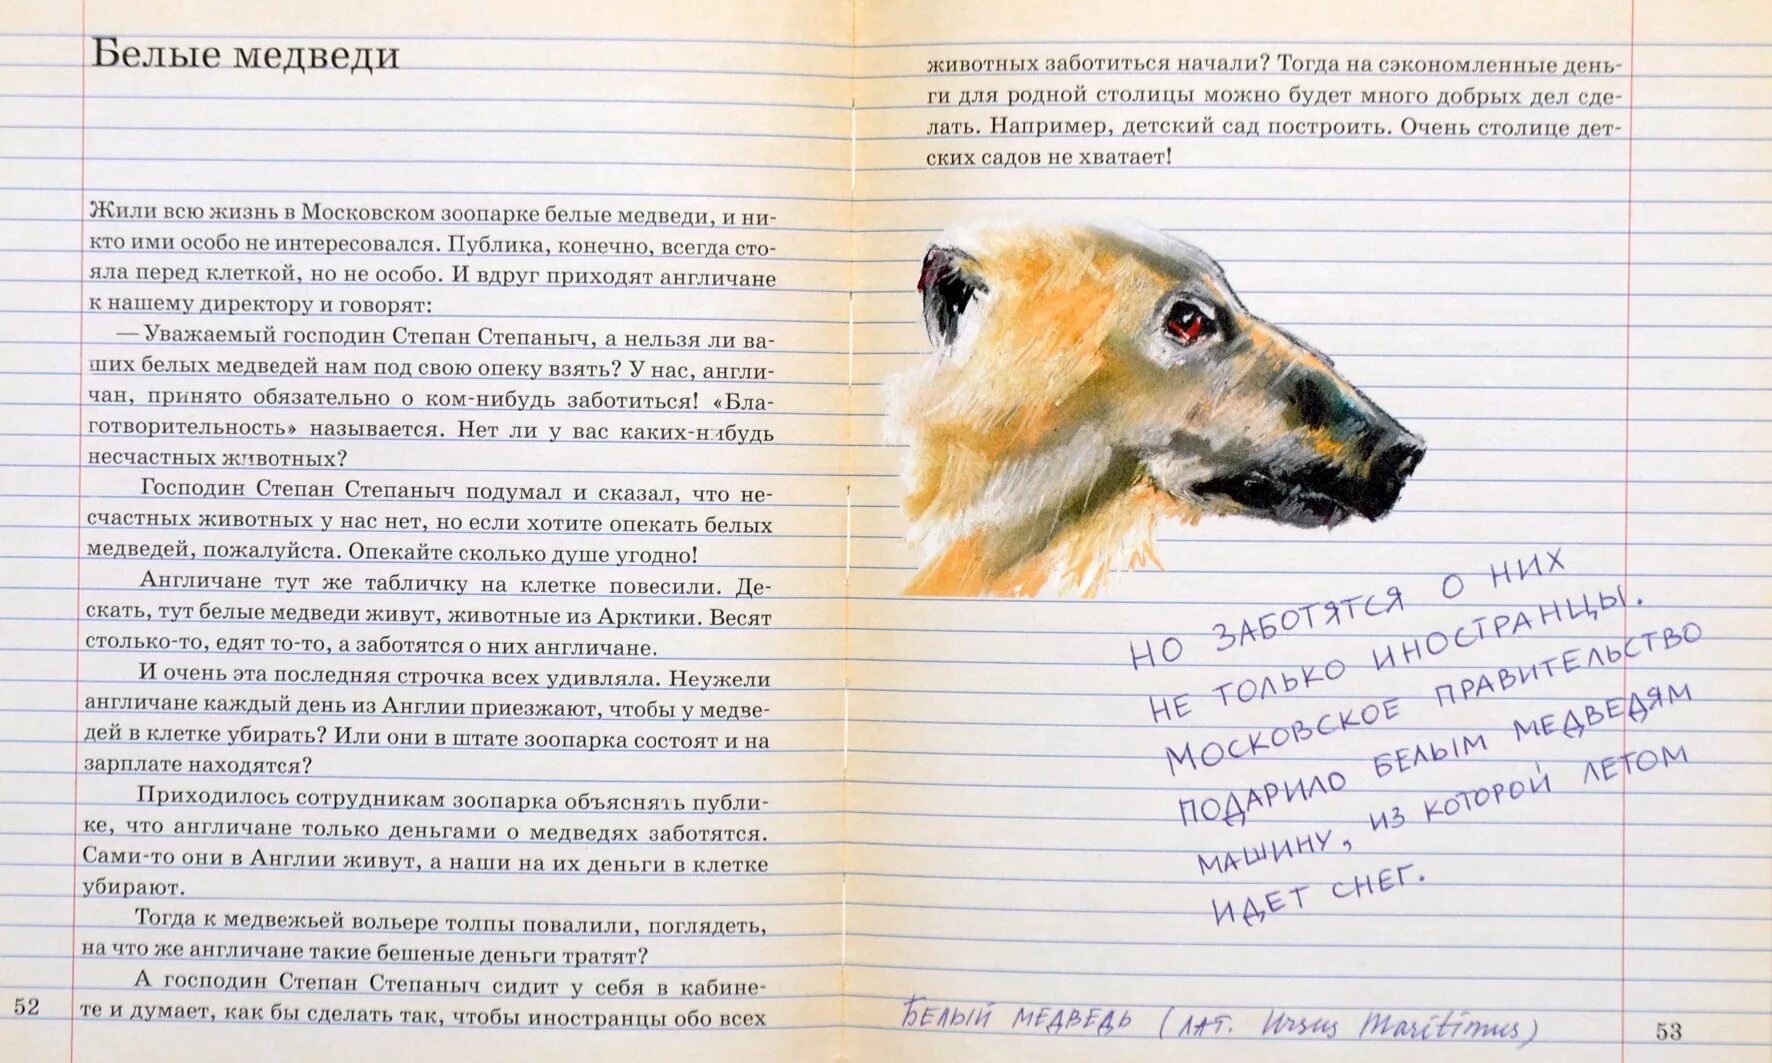 Белые медведи
Жили всю жизнь в Московском зоопарке белые медведи, и ни-
кто ими особо не интересовался. Публика, конечно, всегда сто-
яла перед клеткой, но не особо. И вдруг приходят англичане
к нашему директору и говорят:
— Уважаемый господин Степан Степаныч, а нельзя ли ва-
ших белых медведей нам под свою опеку взять? У нас, англи-
чан, принято обязательно о ком-нибудь заботиться! «Бла-
готворительность» называется. Нет ли у вас каких-нибудь
несчастных животных?
Господин Степан Степаныч подумал и сказал, что не-
счастных животных у нас нет, но если хотите опекать белых
медведей, пожалуйста. Опекайте сколько душе угодно!
Англичане тут же табличку на клетке повесили. Де-
скать, тут белые медведи живут, животные из Арктики. Весят
столько-то, едят то-то, а заботятся о них англичане.
И очень эта последняя строчка всех удивляла. Неужели
англичане каждый день из Англии приезжают, чтобы у медве-
дей в клетке убирать? Или они в штате зоопарка состоят и на
зарплате находятся?
Приходилось сотрудникам зоопарка объяснять публи-
ке, что англичане только деньгами о медведях заботятся.
Сами-то они в Англии живут, а наши на их деньги в клетке
убирают.
Тогда к медвежьей вольере толпы повалили, поглядеть,
на что же англичане такие бешеные деньги тратят?
А господин Степан Степаныч сидит у себя в кабине-
те и думает, как бы сделать так, чтобы иностранцы обо всех
52
животных заботиться начали? Тогда на сэкономленные день-
ги для родной столицы можно будет много добрых дел сде-
лать. Например, детский сад построить. Очень столице дет-
ских садов не хватает!
НО ЗАБОТЯТСЯ О НИХ
НЕ ТОЛЬКО ИНОСТРАНЦЫ.
МОСКОВСКОЕ ПРАВИТЕЛЬСТВО
ПОДАРИЛО БЕЛЫМ МЕДВЕДЯМ
МАШИНУ, ИЗ КОТОРОЙ ЛЕТОМ
ИДЕТ СНЕГ.
БЕЛЫЙ МЕДВЕДЬ (ЛАТ. Ursus Maritimus)
53